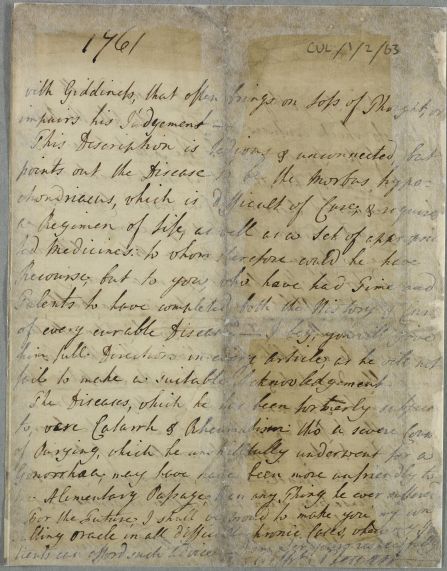 1761
CUL/1/2/63
with Giddiness, that often brings on Loss of Thought, or
impairs his Judgement —
This Description is tedious, & unconnected, but
points out the Disease to be the Morbus hypo-
chondriacus, which is difficult of Cure, & requires
a Regimen of Life, as well as a Set of appropria
ted Medicines: to whom therefore could he have
Recourse, but to you, who have had Time and
Talents to have compleated both the History & Cure
of every curable Disease — I beg, you will give
him full Directions in every article, as he will not
fail to make a suitable Acknowledgement
The Diseases, which he has been formerly subject
to, were Catarrh & Rheumatism: tho' a severe Course
of Purging, which he unskillfully underwent for a
Gonorrhæa, may have been more unfriendly to
Alimentary Passage, than any Thing he ever suffered
For the Future, I shall be proud to make you my
ling oracle in all difficult chronic Cases, when
tients can afford such Advice